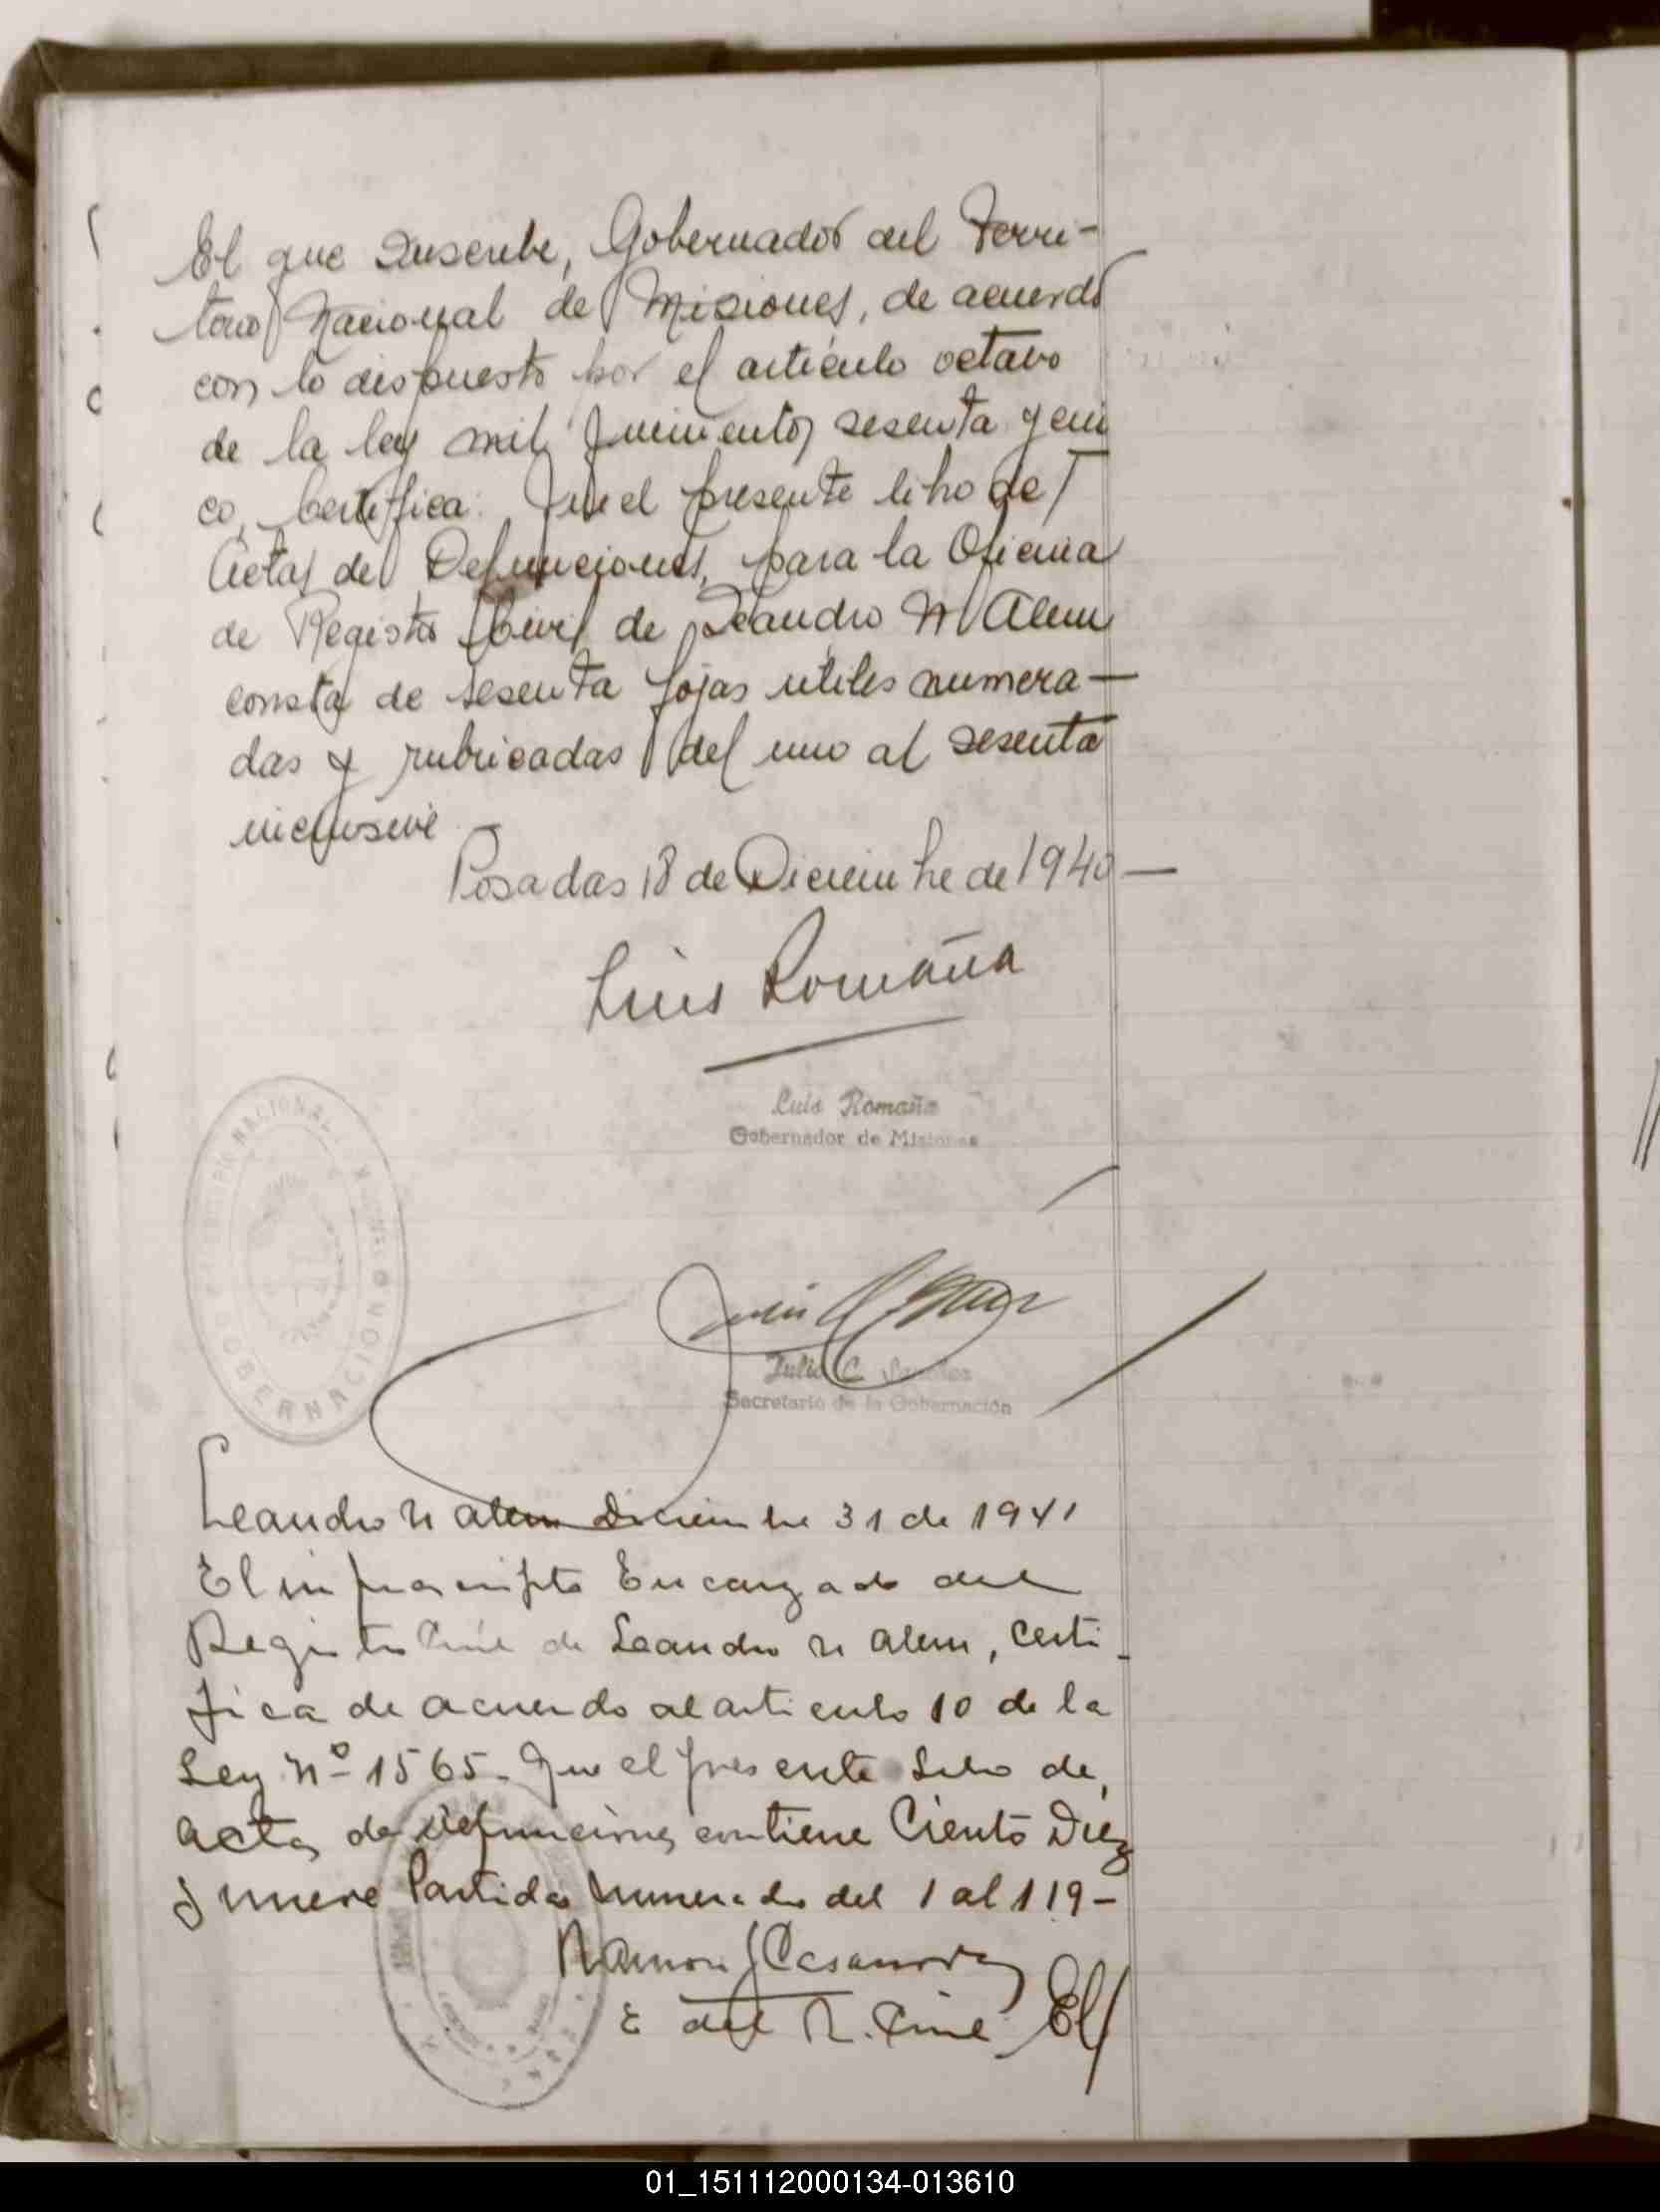 El que suscribe, Gobernador del Terri-
torio Nacional de Misiones, de acuerdo
con lo dispuesto por el artículo octavo
de la ley mil quinientos sesenta y cin
co, Certifica: Que el presente libro de
Actas de Defunciones, para la Oficina
de Registro Civil de Leandro N Alem
consta de sesenta fojas utiles numera-
das y rubricadas del uno al sesenta
inclusive
Posadas 18 de Diciembre de 1940-
Luis Romaña
Luis Romaña
Gobernador de Misiones
Julio C.
Secretario de la Gobernación
GOBERNACION
NACIONAL
Leandro N Alem Diciembre 31 de 1941
El infrascripto Encargado del
Registro Civil de Leandro N Alem, certi-
fica de acuerdo al articulo 10 de la
Ley Nº 1565. Que el presente Libro de
Actas de Defunciones contiene Ciento Diez
y nueve Partidas Numeradas del 1 al 119-
Ramon J Casanova
E del R. Civil
01_151112000134-013610